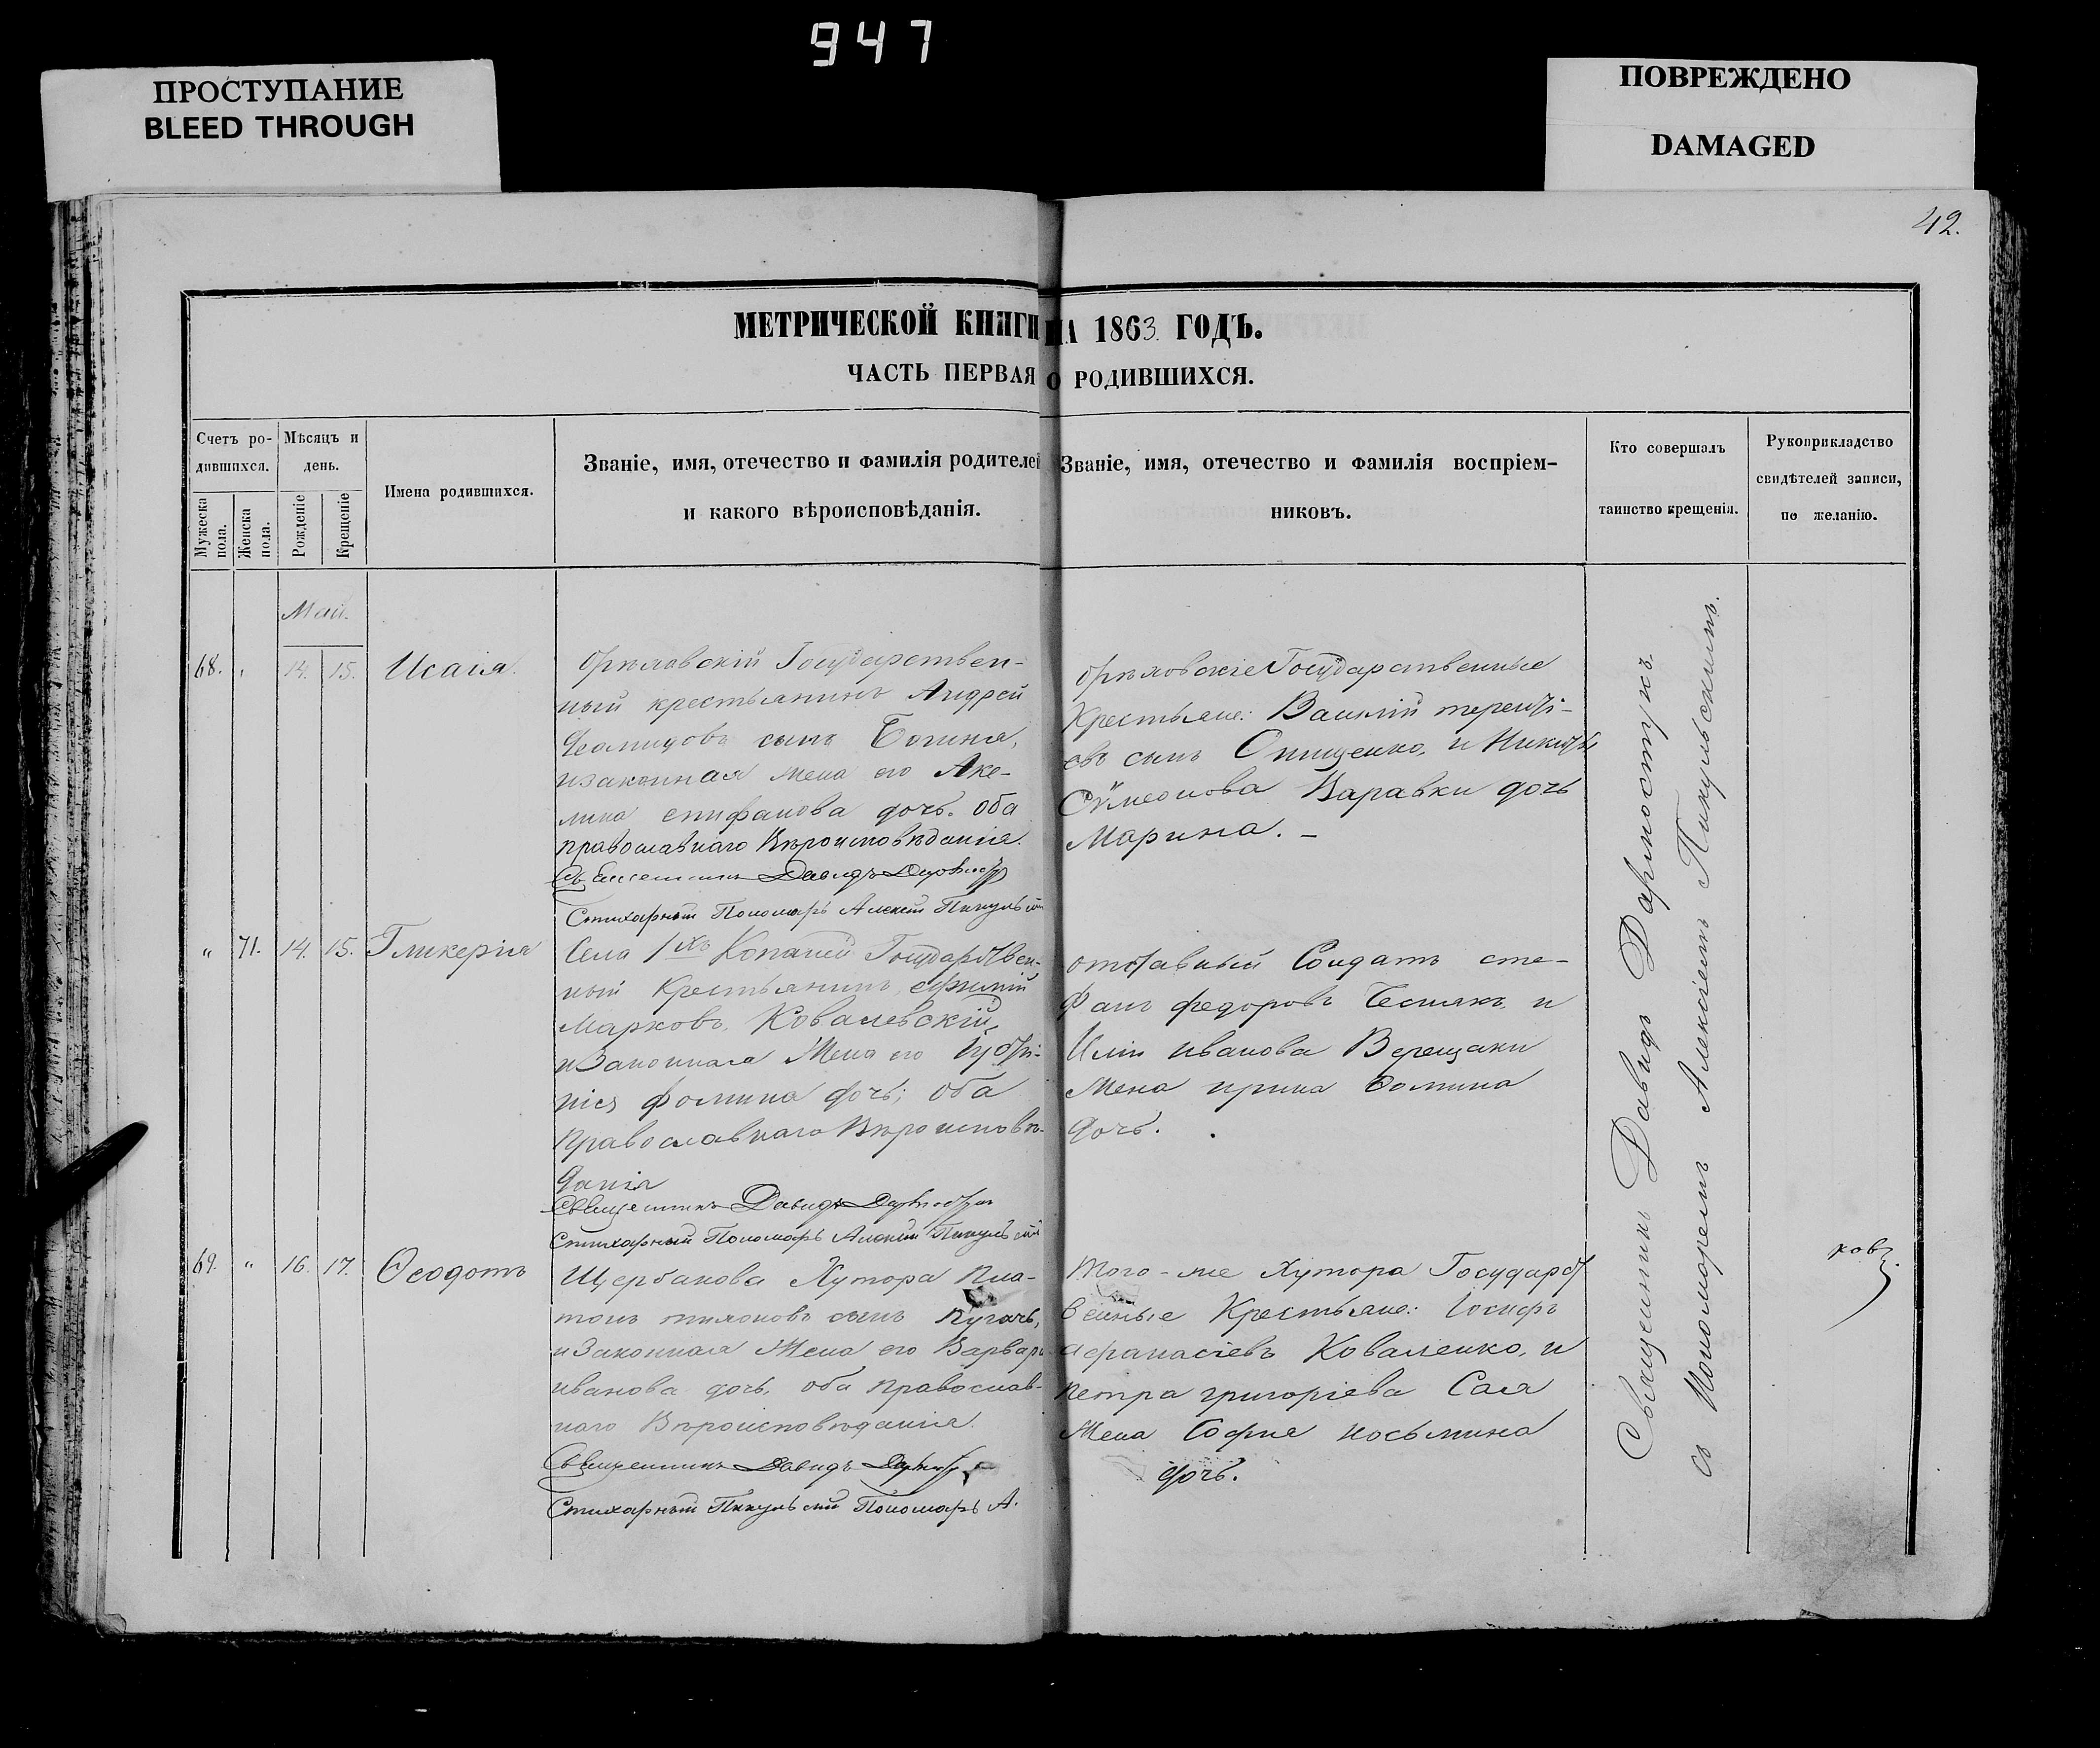 947
ПРОСТУПАНИЕ
BLEED THROUGH
ПОВРЕЖДЕНО
DAMAGED
42.
МЕТРИЧЕСКОЙ КНИГИ НА 1863 ГОДЪ.
ЧАСТЬ ПЕРВАЯ О РОДИВШИХСЯ.
Счетъ ро-
дившихся.
Мужеска
пола.
Женска
пола.
Мѣсяцъ и
день.
Рожденіе
Крещеніе
Имена родившихся.
Званіе, имя, отечество и фамилія родителей
и какого вѣроисповѣданія.
Званіе, имя, отечество и фамилія воспріем-
никовъ.
Кто совершалъ
таинство крещенія.
Рукоприкладство
свидѣтелей записи,
по желанію.
Май.
68. 14. 15. Исаія.
Государствен-
ный крестьянинъ Андрей
сынъ
и законная жена его Аке-
лина епифанова дочь. оба
православнаго Вѣроисповѣданія.
Священникъ Давидъ
Стихарный Пономарь Алексій Пикульскій
Государственные
Крестьяне: Василій теренті-
евъ сынъ Онищенко, и Никиты
Сѵмеонова Варавки дочь
Марина. –
„ 71. 14. 15. Гликерія
Села 1хъ Копаней Государствен-
ный Крестьянинъ
Марковъ Ковалевскій,
и Законная Жена его
фомина дочь; оба
Православнаго Вѣроисповѣ-
данія
Священникъ Давидъ
Стихарный Пономарь Алексій Пикульскій
отставный Солдатъ сте-
фанъ федоровъ и
Иліи иванова Верещаки
жена ирина
дочь.
69. „ 16. 17. Ѳеодотъ
Щербакова Хутора Пла-
тонъ сынъ Пугачъ,
и Законная Жена его Варвара
иванова дочь, оба Православ-
наго Вѣроисповѣданія.
Священникъ Давидъ
Стихарный Пикульскій Пономарь А.
того-же Хутора Государст
венные Крестьяне: Іосифъ
афанасіевъ Коваленко, и
петра григоріева Сая
Жена Софія косьмина
дочь.
Священникъ Давидъ Дармостукъ
съ Пономаремъ Алексіемъ Пикульскимъ.
ковъ.